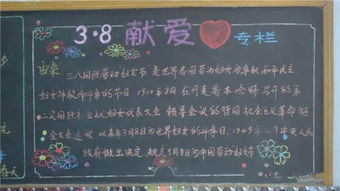 3·8 献爱 专栏
由来 三八国际劳动妇女节 是世界各国劳动妇女为争取和平民主
妇女解放而斗争的节日 1910年8月在丹麦哥本哈根召开的第
二次国际社会主义妇女代表大会 领导会议的德国社会主义革命
大会建议 以每年3月8日为世界妇女的斗争日 1949年 人民
政府做出决定 规定3月8日为中国劳动妇女